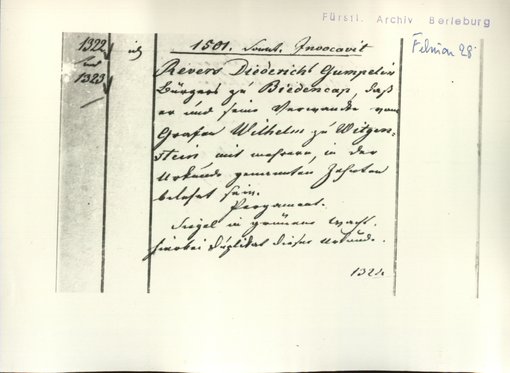 Fürstl. Archiv Berleburg
Februar 28
1322
und
1323
1501. Sonnt. Invocavit
Revers Diederichs Gumpelin
Bürgers zu Biedencap, daß
er und seine Verwandte vom
Grafen Wilhelm zu Witgen-
stein mit mehrern, in der
Urkunde genannten Zehnten
belehnt sein.
Pergament.
Siegel in grünem Wachs.
hierbei Duplikat dieser Urkunde.